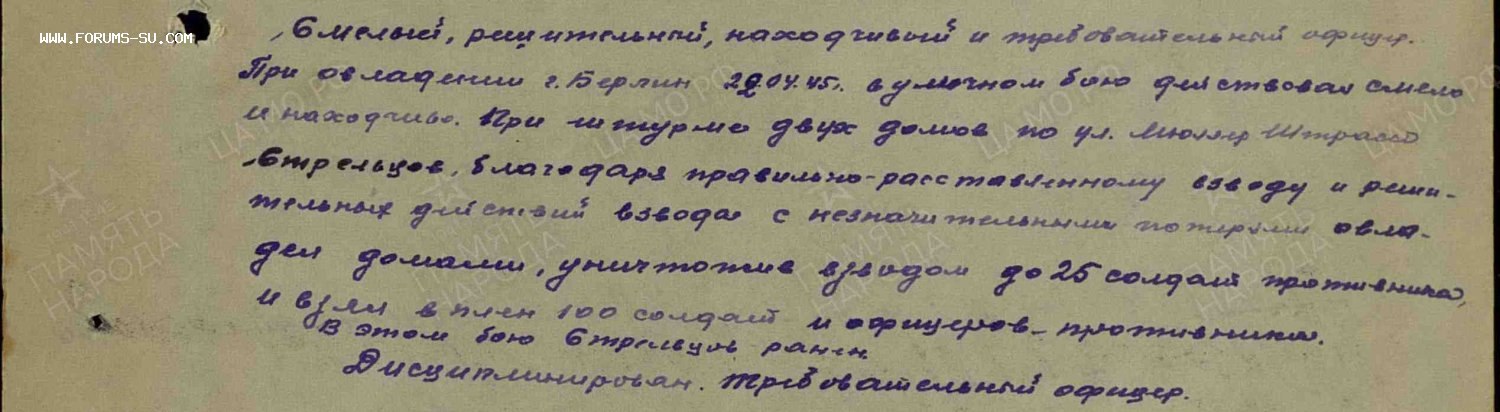 WWW.FORUMS-SU.COM
Смелый, решительный, находчивый и требовательный офицер.
При овладении г. Берлин 29.04.45г. в уличном бою действовал смело
и находчиво. При штурме двух домов по ул. Мюллер Штрассе
Стрельцов, благодаря правильно-расставленному взводу и реши-
тельных действий взвода с незначительными потерями овла-
дел домами, уничтожив взводом до 25 солдат противника,
и взял в плен 100 солдат и офицеров-противника.
В этом бою Стрельцов ранен.
Дисциплинирован. Требовательный офицер.
ЦАМО РФ
ЦАМО РФ
ЦАМО РФ
ЦАМО РФ
ПАМЯТЬ НАРОДА
ПАМЯТЬ НАРОДА
ПАМЯТЬ НАРОДА
ПАМЯТЬ НАРОДА